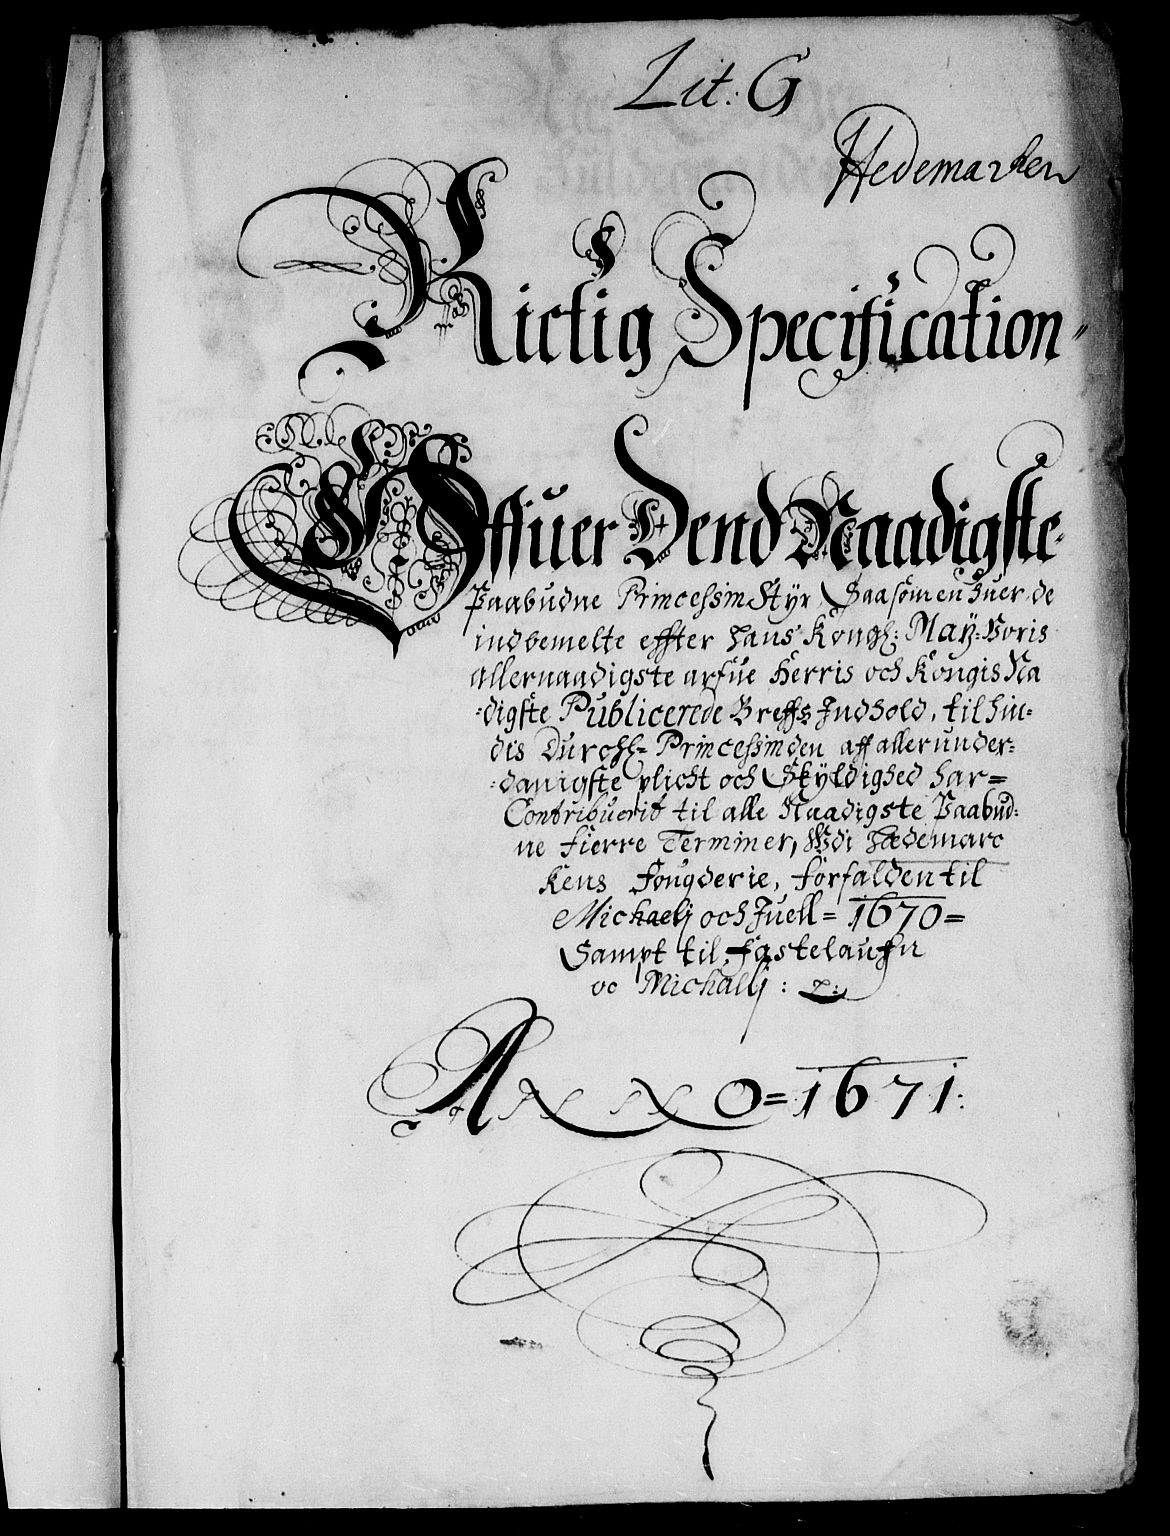 Lit: G
Hedemarken
Rictig Specification
Offuer Dend Naadigste
Paabudne Princessin Styr, Saasom en huer de
indbemelte effter hans Kongl: May: Voris
allernaadigste arfue Herris och Kongis Na
digste Publicerede Breffs Indhold, til hin-
dis Durchl= Princessinden aff allerunder-
danigste plicht och Skyldighed har=
Contribuerit til alle Naadigste Paabud-
ne fierre Terminer, Udi Hædemarc
kens fougderie, forfalden til
Michaelj och Juell= 1670=
Sampt til fastelaufn
oc Michaelj :
ANNO=1671: